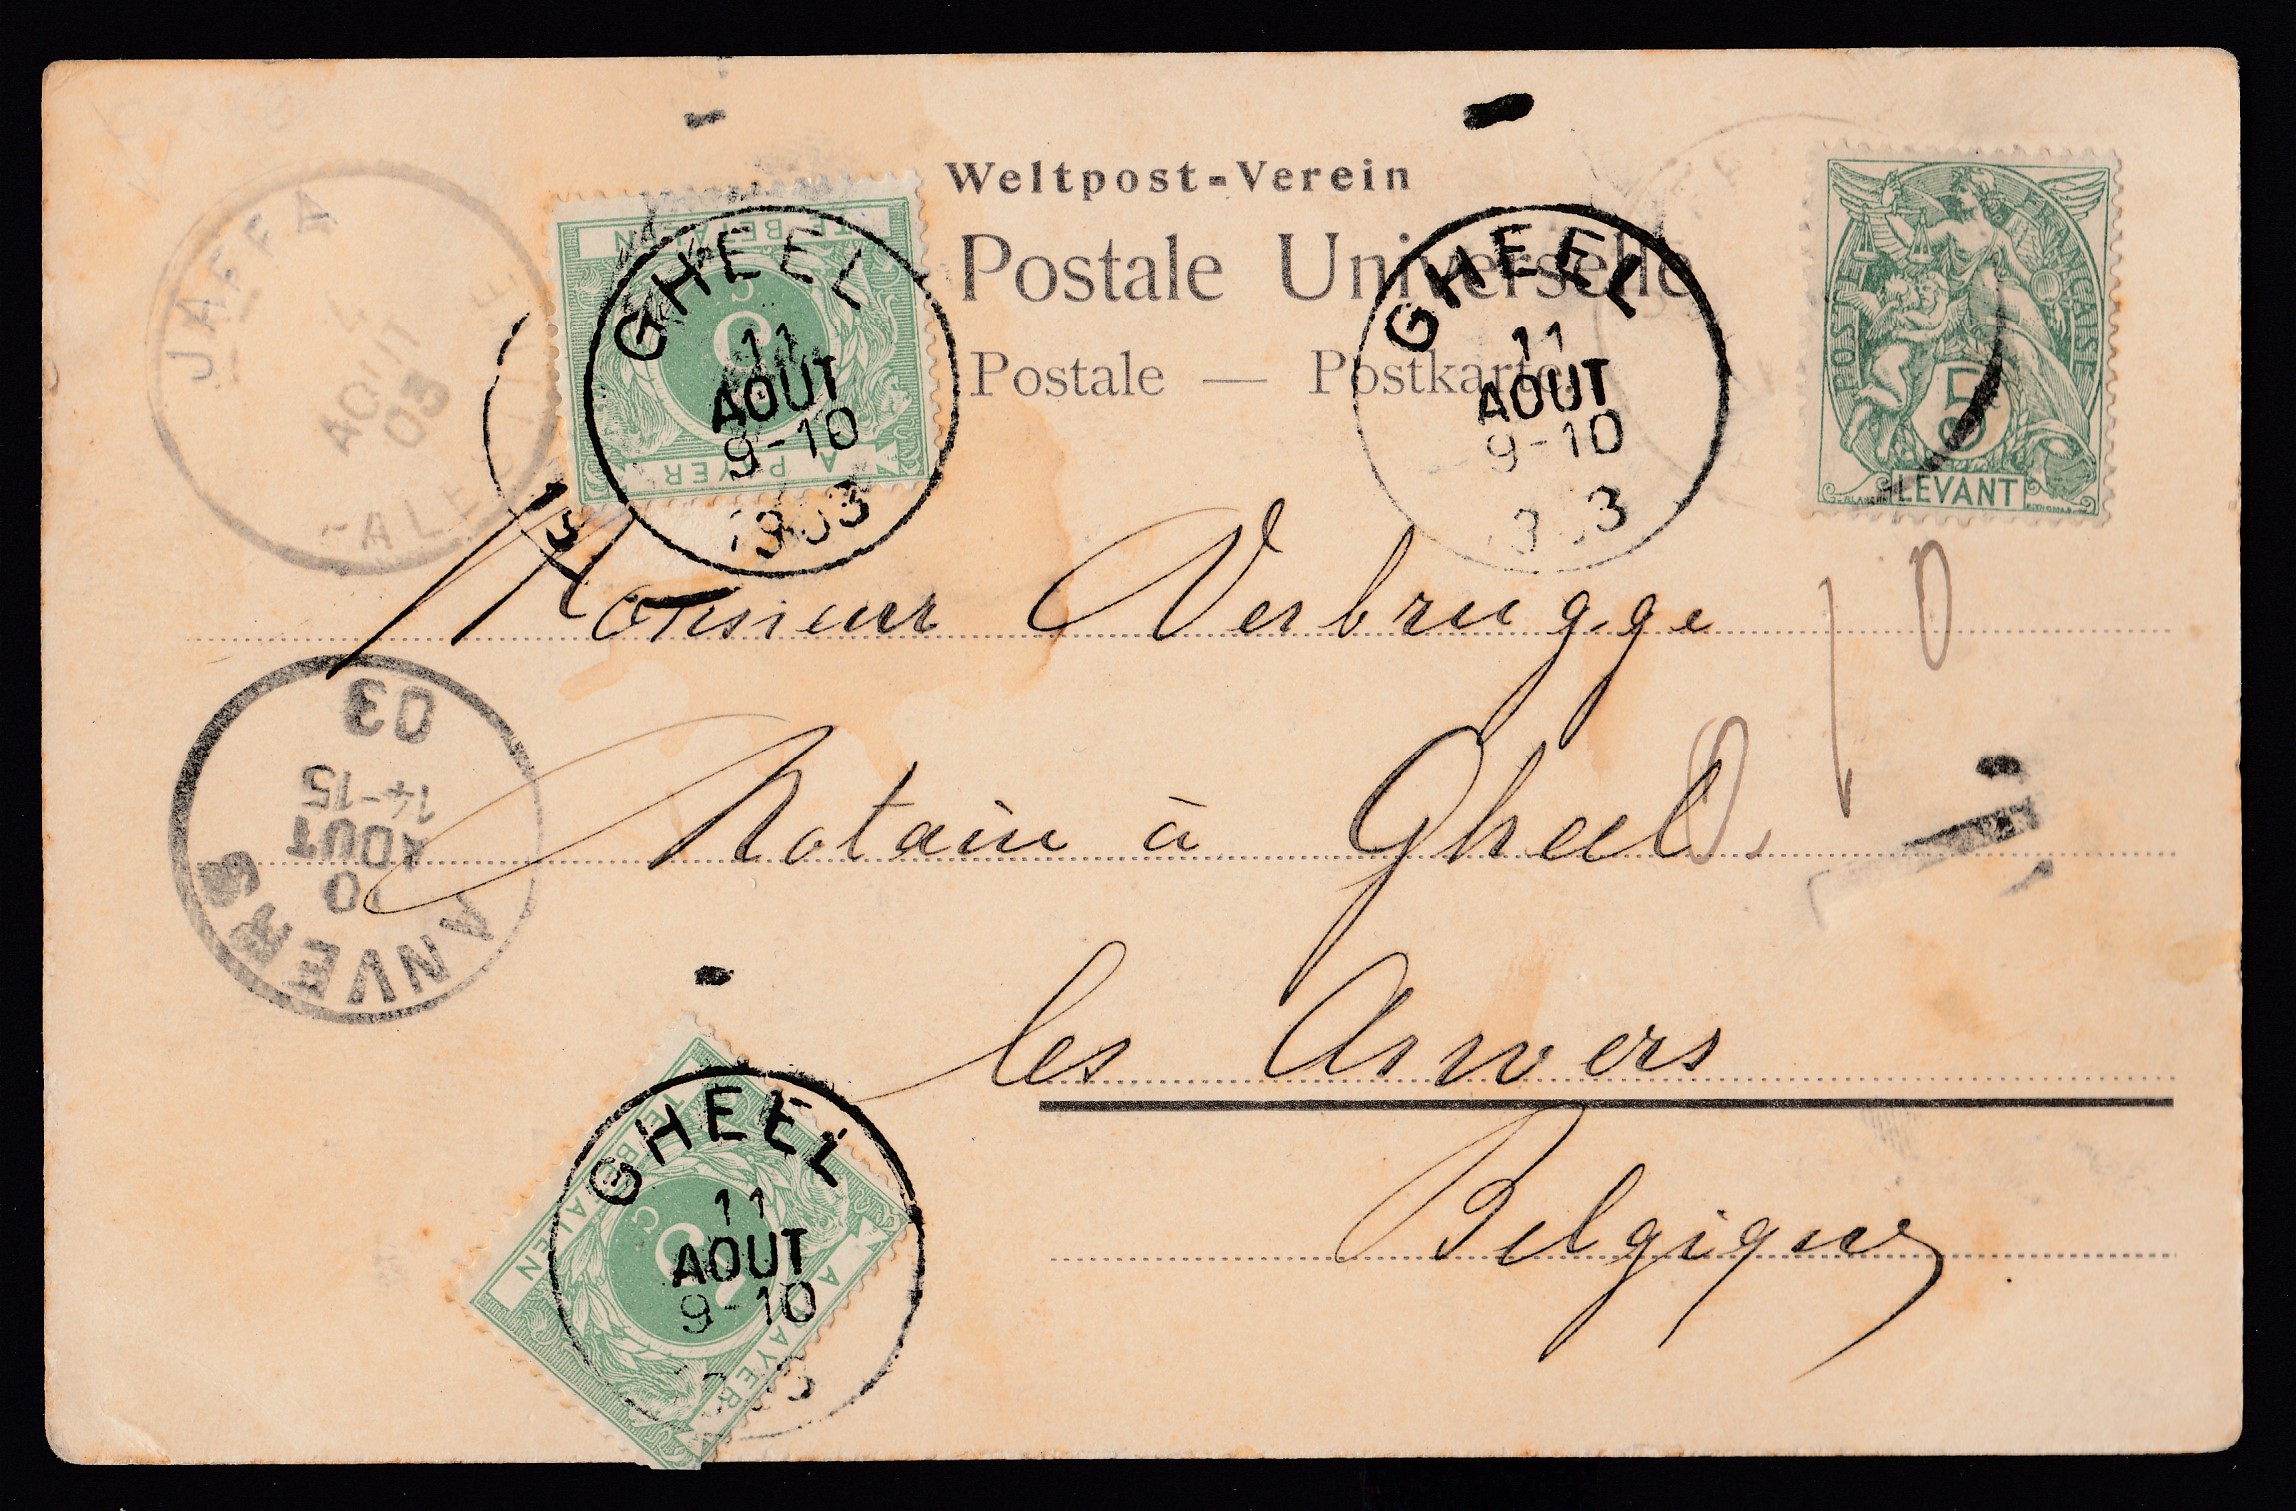 Weltpost-Verein
Postale Universelle
Postale — Postkarte
JAFFA
AOUT
03
TE BETALEN
5
C
A PAYER
GHEEL
11
AOUT
9-10
1903
GHEEL
11
AOUT
9-10
POSTE FRANÇAISE
5
LEVANT
Monsieur Verbrugge
10
Notaire à Gheel
ANVERS
10
AOUT
14-15
03
les Anvers
Belgique
TE BETALEN
5
C
A PAYER
GHEEL
11
AOUT
9-10